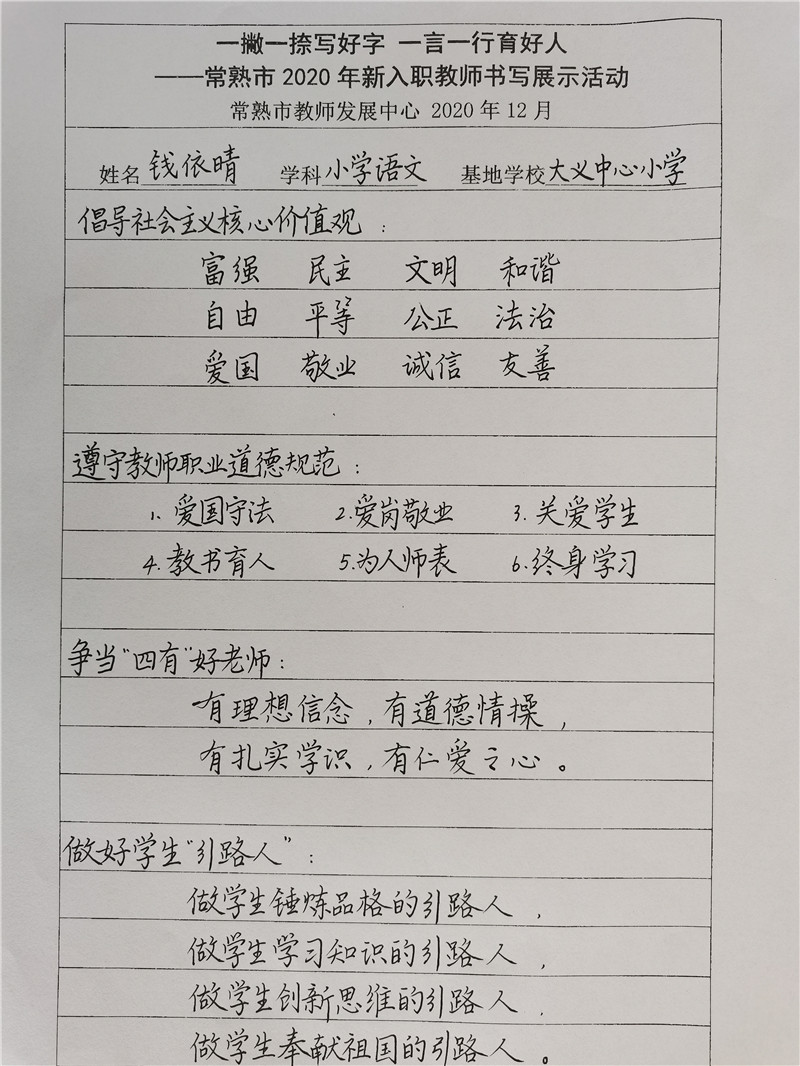 一撇一捺写好字 一言一行育好人
——常熟市2020年新入职教师书写展示活动
常熟市教师发展中心 2020年12月
姓名 钱依晴 学科 小学语文 基地学校 大义中心小学
倡导社会主义核心价值观：
富强 民主 文明 和谐
自由 平等 公正 法治
爱国 敬业 诚信 友善
遵守教师职业道德规范：
1.爱国守法 2.爱岗敬业 3.关爱学生
4.教书育人 5.为人师表 6.终身学习
争当“四有”好老师：
有理想信念，有道德情操，
有扎实学识，有仁爱之心。
做好学生“引路人”：
做学生锤炼品格的引路人，
做学生学习知识的引路人，
做学生创新思维的引路人，
做学生奉献祖国的引路人。